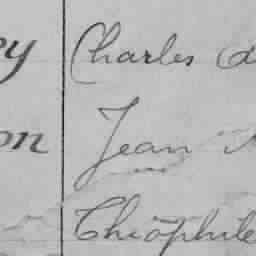 ey Charles
on Jean
Théophile